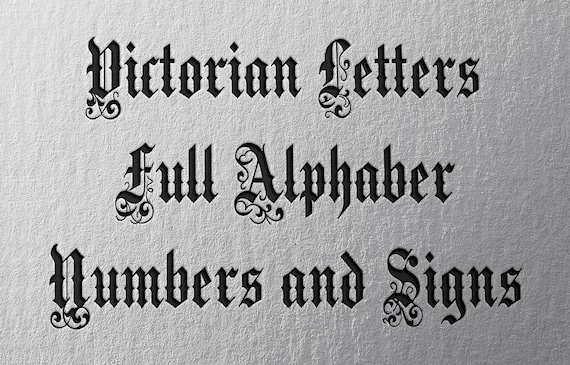 Victorian Letters
Full Alphaber
Numbers and Signs